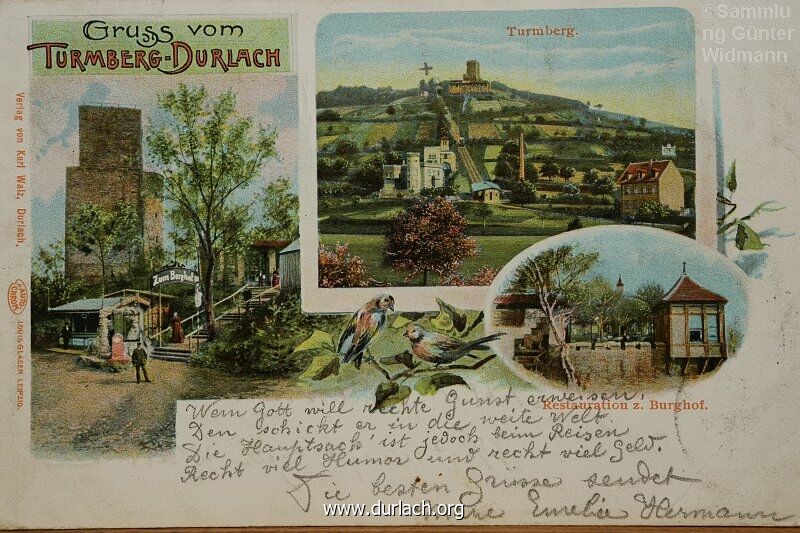 Gruss vom
TURMBERG-DURLACH
Turmberg.
©Sammlu
ng Günter
Widmann
Verlag von Karl Walz, Durlach.
Zum Burghof
AUTO
CHROM
LOUIS GLASER LEIPZIG.
Restauration z. Burghof.
Wem Gott will rechte Gunst erweisen,
Den schickt er in die weite Welt
Die Hauptsach' ist jedoch beim Reisen
Recht viel Humor und recht viel Geld.
Die besten Grüsse sendet
Emelie Hermann
www.durlach.org